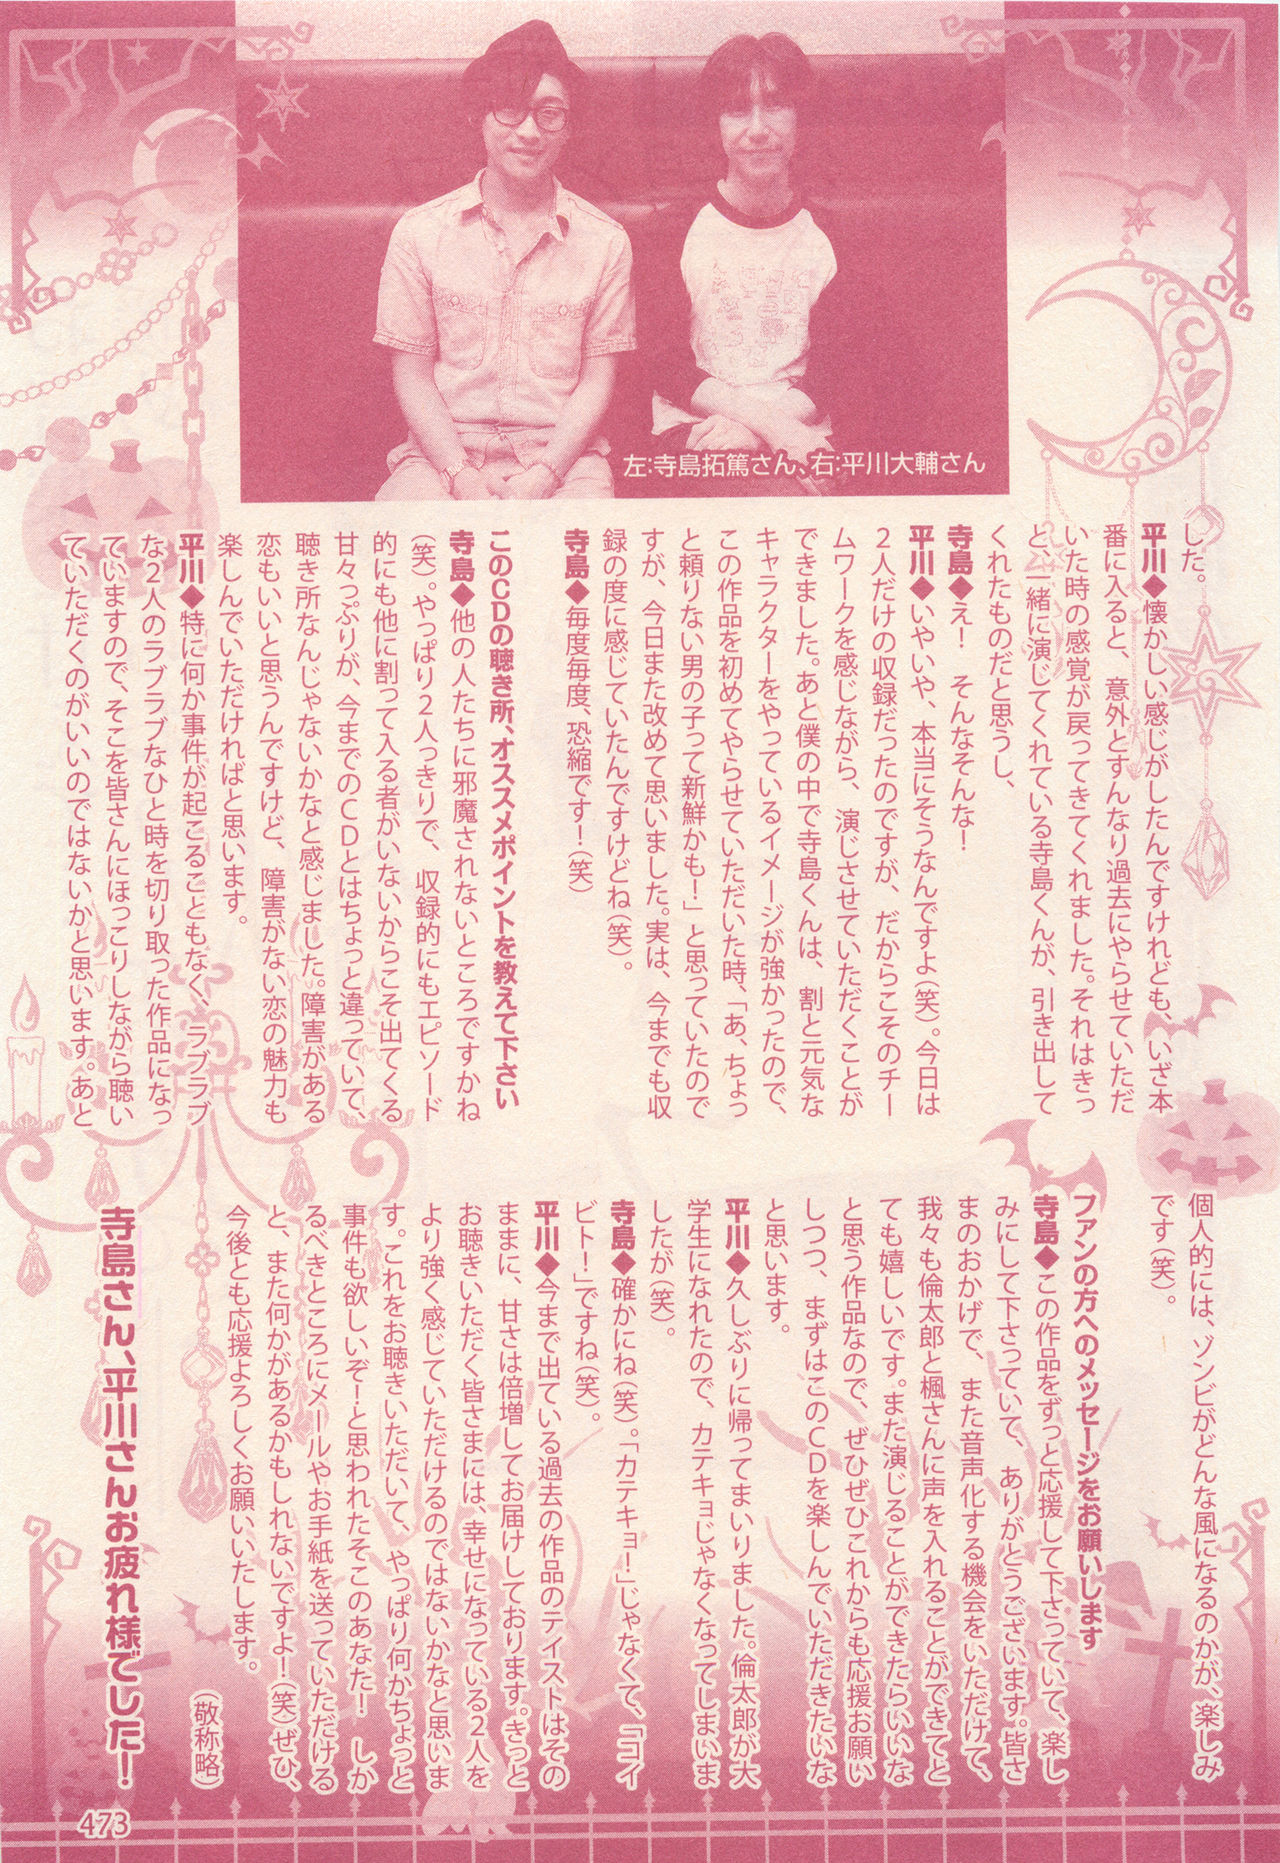 左:寺島拓篤さん、右:平川大輔さん
した。
平川◆懐かしい感じがしたんですけれども、いざ本
番に入ると、意外とすんなり過去にやらせていただ
いた時の感覚が戻ってきてくれました。それはきっ
と、一緒に演じてくれている寺島くんが、引き出して
くれたものだと思うし、
寺島◆え！　そんなそんな！
平川◆いやいや、本当にそうなんですよ(笑)。今日は
2人だけの収録だったのですが、だからこそのチー
ムワークを感じながら、演じさせていただくことが
できました。あと僕の中で寺島くんは、割と元気な
キャラクターをやっているイメージが強かったので、
この作品を初めてやらせていただいた時、「あ、ちょっ
と頼りない男の子って新鮮かも！」と思っていたので
すが、今日また改めて思いました。実は、今までも収
録の度に感じていたんですけどね(笑)。
寺島◆毎度毎度、恐縮です！(笑)
このCDの聴き所、オススメポイントを教えて下さい
寺島◆他の人たちに邪魔されないところですかね
(笑)。やっぱり2人っきりで、収録的にもエピソード
的にも他に割って入る者がいないからこそ出てくる
甘々っぷりが、今までのCDとはちょっと違っていて、
聴き所なんじゃないかなと感じました。障害がある
恋もいいと思うんですけど、障害がない恋の魅力も
楽しんでいただければと思います。
平川◆特に何か事件が起こることもなく、ラブラブ
な2人のラブラブなひと時を切り取った作品になっ
ていますので、そこを皆さんにほっこりしながら聴い
ていただくのがいいのではないかと思います。あと
個人的には、ゾンビがどんな風になるのかが、楽しみ
です(笑)。
ファンの方へのメッセージをお願いします
寺島◆この作品をずっと応援して下さっていて、楽し
みにして下さっていて、ありがとうございます。皆さ
まのおかげで、また音声化する機会をいただけて、
我々も倫太郎と楓さんに声を入れることができてと
ても嬉しいです。また演じることができたらいいな
と思う作品なので、ぜひぜひこれからも応援お願い
しつつ、まずはこのCDを楽しんでいただきたいな
と思います。
平川◆久しぶりに帰ってまいりました。倫太郎が大
学生になれたので、カテキョじゃなくなってしまいま
したが(笑)。
寺島◆確かにね(笑)。「カテキョ！」じゃなくて、「コイ
ビト！」ですね(笑)。
平川◆今まで出ている過去の作品のテイストはその
ままに、甘さは倍増してお届けしております。きっと
お聴きいただく皆さまには、幸せになっている2人を
より強く感じていただけるのではないかなと思いま
す。これをお聴きいただいて、やっぱり何かちょっと
事件も欲しいぞ！と思われたそこのあなた！　しか
るべきところにメールやお手紙を送っていただける
と、また何かがあるかもしれないですよ！(笑)ぜひ、
今後とも応援よろしくお願いいたします。
(敬称略)
寺島さん、平川さんお疲れ様でした！
473